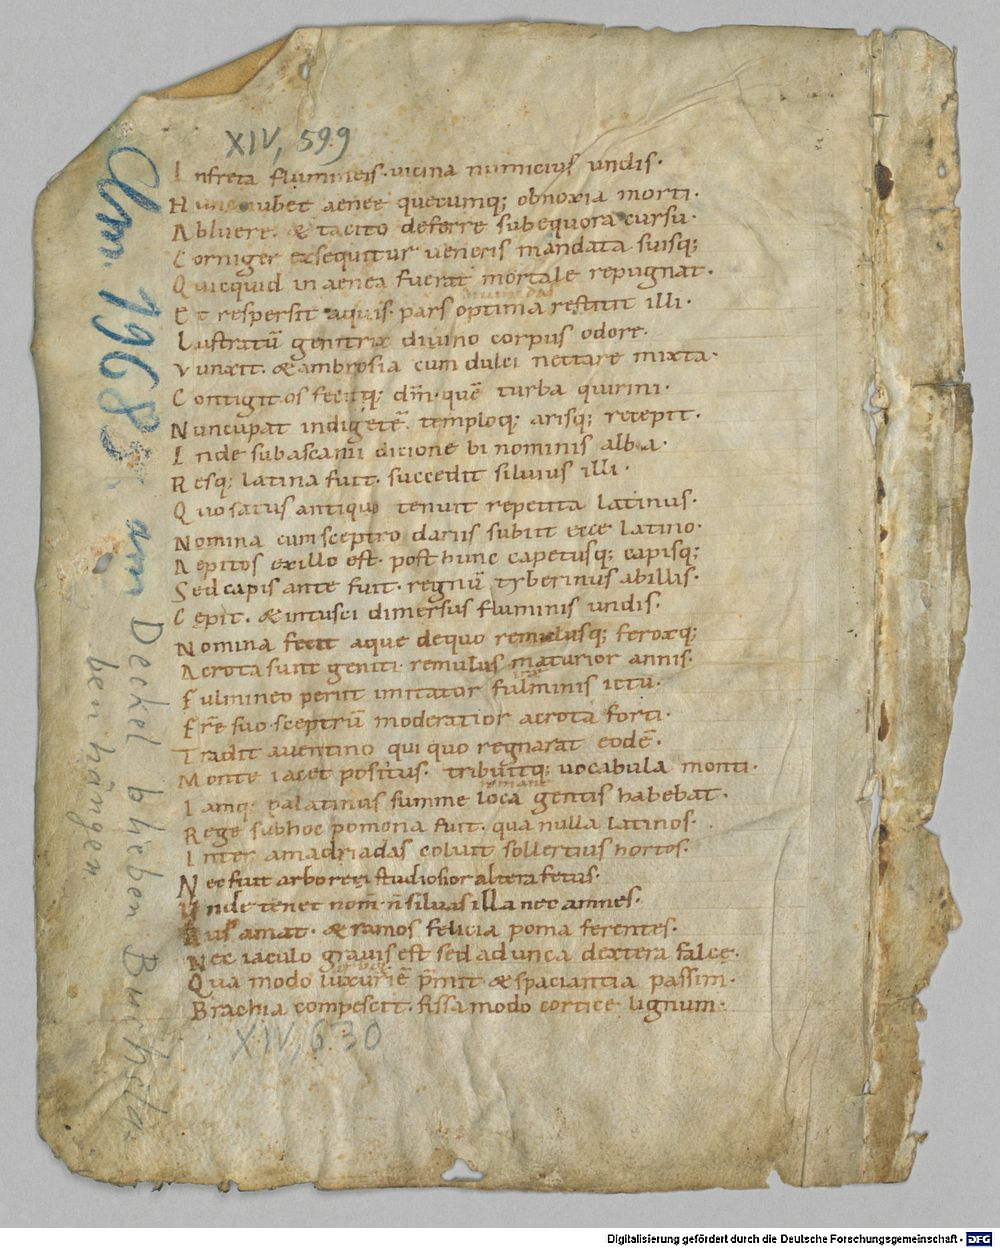 XIV, 599
In freta flumineis. vicina numicius undis.
Hunc iubet aenee quecumq; obnoxia morti.
Abluere. & tacito deferre sub equora cursu.
Corniger exsequitur veneris mandata suisq;
Quicquid in aenea fuerat mortale repugnat.
Et respersit aquis. pars optima restitit illi.
Lustratū genitrix divino corpus odore.
Vunxit. & ambrosia cum dulci nectare mixta.
Contigit os fecitq; dm̄. quē turba quirini.
Nuncupat indigetē. temploq; arisq; recepit.
Inde sub ascanii dicione binominis alba.
Resq; latina fuit. succedit silvius illi.
Quo satus antiquo tenuit repetita latinus.
Nomina cum sceptro clarus subiit ecce latino.
Aepitos ex illo est. post hunc capetusq; capisq;
Sed capis ante fuit. regnū tyberinus ab illis.
Cepit. & in tusci dimersus fluminis undis.
Nomina fecit aque de quo remulusq; feroxq;
Acrota sunt geniti. remulus maturior annis.
Fulmineo periit imitator fulminis ictu.
Frē suo sceptrū moderatior acrota forti.
Tradit aventino qui quo regnarat eodē.
Monte iacet positus. tribuitq; vocabula monti.
romane
Iamq; palatinus summe loca gentis habebat.
Rege sub hoc pomona fuit. qua nulla latinos.
Inter amadriadas coluit sollertius hortos.
Nec fuit arborei studiosior altera fetus.
Unde tenet nom̄. n̄ silvas illa nec amnes.
Rus amat. & ramos felicia poma ferentes.
Nec iaculo gravis est sed adunca dextera falce.
Qua modo luxuriē p̄mit & spaciantia passim.
Brachia compescit. fissa modo cortice lignum.
XIV, 630
Clm. 19685 am Deckel blieben Buchsta-
ben hängen
Digitalisierung gefördert durch die Deutsche Forschungsgemeinschaft - DFG